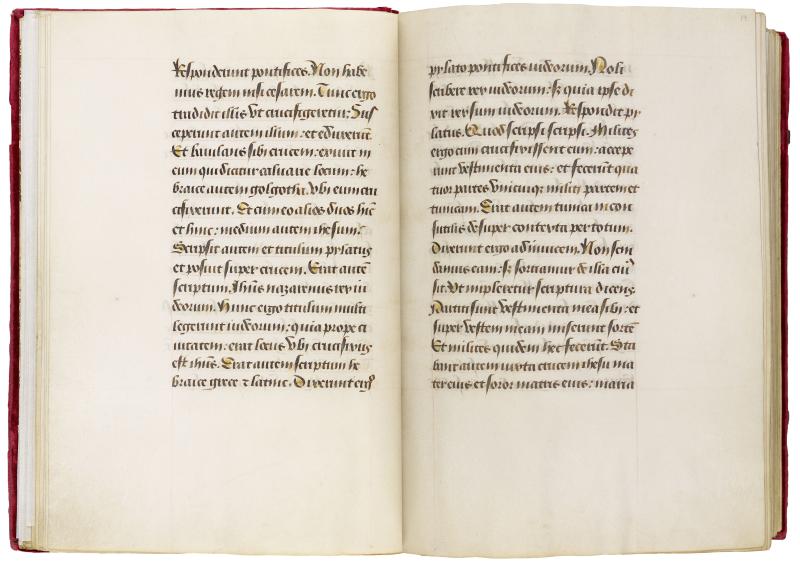 Responderunt pontifices. Non habe
mus regem nisi cesarem. Tunc ergo
tradidit illis vt crucifigeretur: Sus
ceperunt autem illum: et eduxerūt.
Et baiulans sibi crucem: exiuit in
eum qui dicitur caluarie locum: he
braice autem golgotha. Vbi eum cru
cifixerunt. Et cum eo alios duos hīc
et hinc: medium autem ihesum:
Scripsit autem et titulum pylatus
et posuit super crucem. Erat autē
scriptum. Ihūs nazarenus rex iu
deorum. Hunc ergo titulum multi
legerunt iudeorum: quia prope ci
uitatem: erat locus vbi crucifixus
est ihūs. Erat autem scriptum he
braice grece ⁊ latine. Dixerunt erg̊
pylato pontifices iudeorum. Noli
scribere rex iudeorum: sꝫ quia ipse di
xit rex sum iudeorum. Respondit py
latus. Quod scripsi scripsi. Milites
ergo cum crucifixissent eum: accepe
runt vestimenta eius: et fecerunt qua
tuor partes vnicuiqꝫ militi partem et
tunicam. Erat autem tunica incon
sutilis desuper contexta per totum.
Dixerunt ergo adinuicem. Non scin
damus eam: sꝫ sortiamur de illa cui᷒
sit. Vt impleretur scriptura dicens.
Partiti sunt vestimenta mea sibi: et
super vestem meam miserunt sortē
Et milites quidem hec fecerūt. Sta
bant autem iuxta crucem ihesu ma
ter eius et soror matris eius: maria